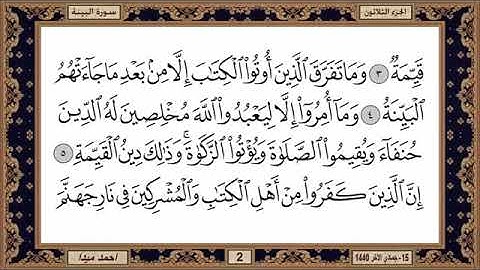 سورة البينة
الجزء الثلاثون
قَيِّمَةٌ ٣ وَمَا تَفَرَّقَ الَّذِينَ أُوتُوا الْكِتَابَ إِلَّا مِنْ بَعْدِ مَا جَاءَتْهُمُ
الْبَيِّنَةُ ٤ وَمَا أُمِرُوا إِلَّا لِيَعْبُدُوا اللَّهَ مُخْلِصِينَ لَهُ الدِّينَ
حُنَفَاءَ وَيُقِيمُوا الصَّلَاةَ وَيُؤْتُوا الزَّكَاةَ ۚ وَذَٰلِكَ دِينُ الْقَيِّمَةِ ٥
إِنَّ الَّذِينَ كَفَرُوا مِنْ أَهْلِ الْكِتَابِ وَالْمُشْرِكِينَ فِي نَارِ جَهَنَّمَ
15- جمادي الآخر 1440
2